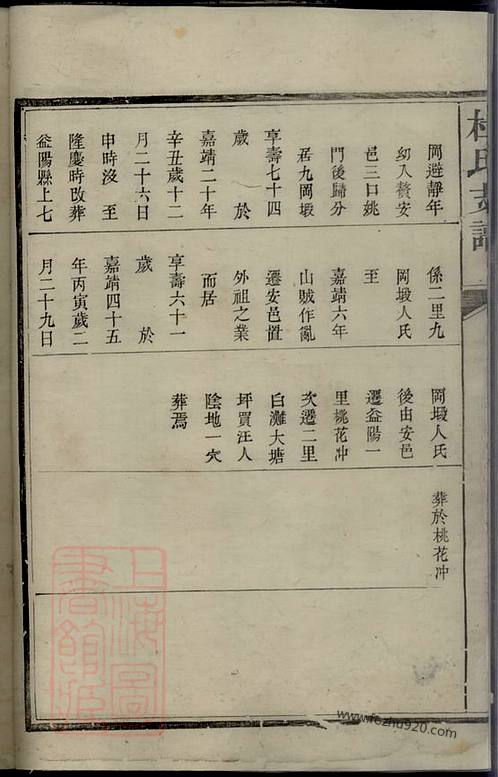 杜氏支譜
岡避靜年
幼入贅安
邑三口姚
門後歸分
居九岡塅
享壽七十四
歲 於
嘉靖二十年
辛丑歲十二
月二十六日
申時沒 至
隆慶時改葬
益陽縣上七
係二里九
岡塅人氏
至
嘉靖六年
山賊作亂
遷安邑置
外祖之業
而居
享壽六十一
歲 於
嘉靖四十五
年丙寅歲二
月二十九日
岡塅人氏
後由安邑
遷益陽一
里桃花冲
次遷二里
白灘大塘
坪買汪人
陰地一穴
葬焉
葬於桃花冲
上海圖
書館藏
www.fozhu920.com